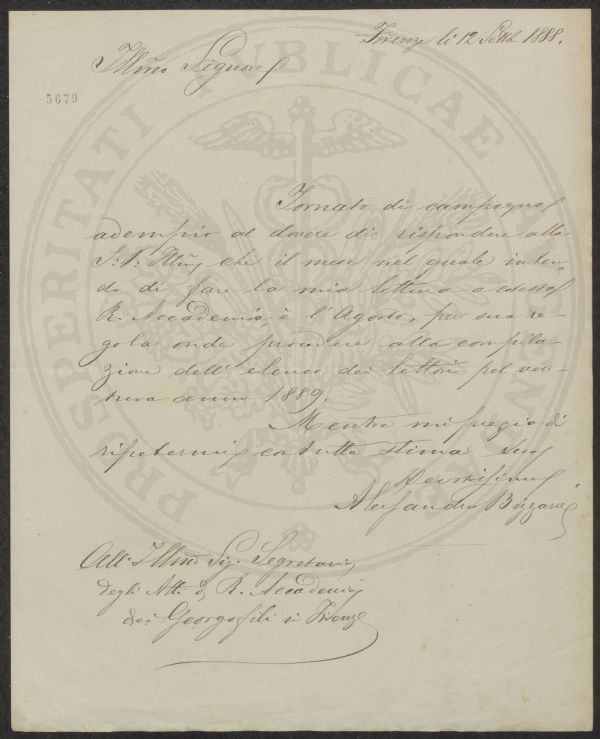 Firenze li 12 Settb 1888.
Illmo Signore
5679
Tornato di campagna
adempio al dovere di rispondere alla
S: V: Illma che il mese nel quale inten-
do di fare la mia lettura a codesta
R. Accademia, è l'Agosto, per sua re-
gola onde procedere alla compila-
zione dell'elenco dei lettori pel ven-
turo anno 1889.
Mentre mi pregio di
ripetermi con tutta stima suo
Devotissimo
Alessandro
All' Illmo Sig. Segretario
degli Atti d R. Accademia
dei Georgofili in Firenze
PROSPERITATI PUBLICAE AUGENDAE